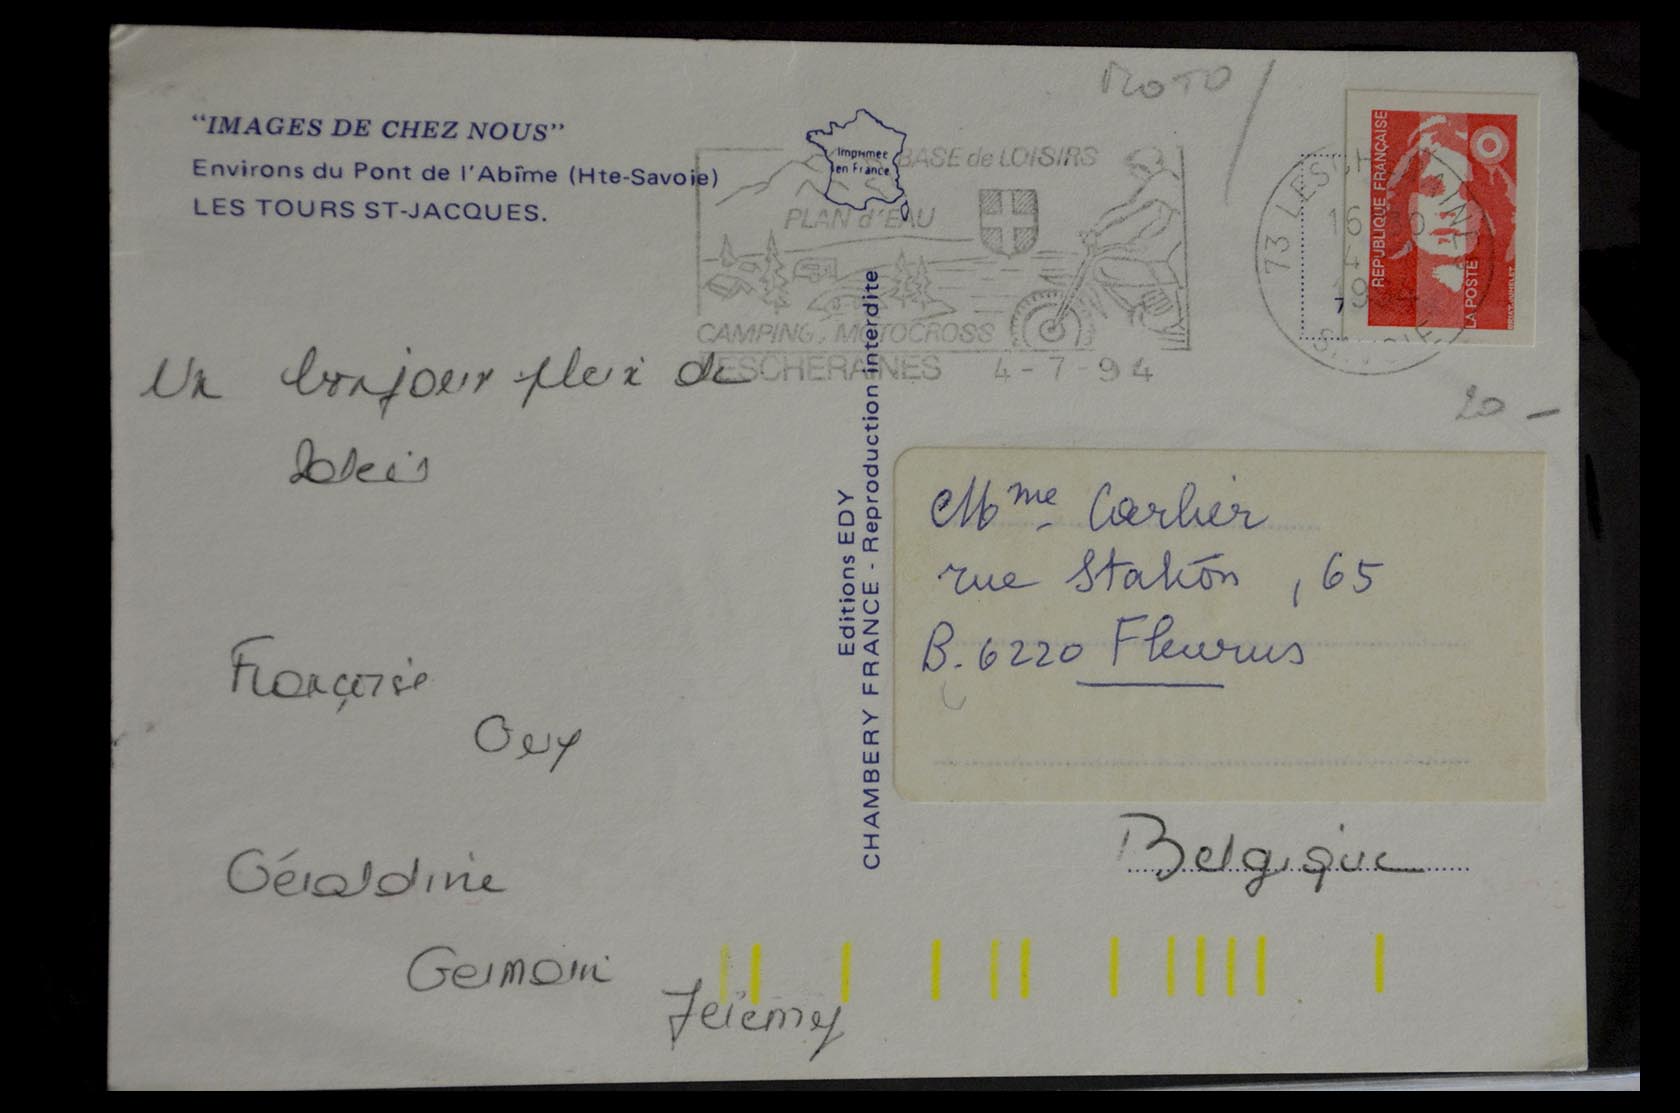 "IMAGES DE CHEZ NOUS"
Environs du Pont de l'Abîme (Hte-Savoie)
LES TOURS ST-JACQUES.
Imprimée
en France
MOTO
BASE de LOISIRS
PLAN d'EAU
CAMPING, MOTOCROSS
LESCHERAINES 4-7-94
73 LESCH
16 30
4
7
19
SAVOIE
REPUBLIQUE FRANÇAISE
LA POSTE
20 -
Un bonjour plein de
soleil
Françoise
Guy
Géraldine
Germain
Jérémy
Editions EDY
CHAMBERY FRANCE - Reproduction interdite
Mme Carlier
rue Station, 65
B. 6220 Fleurus
Belgique